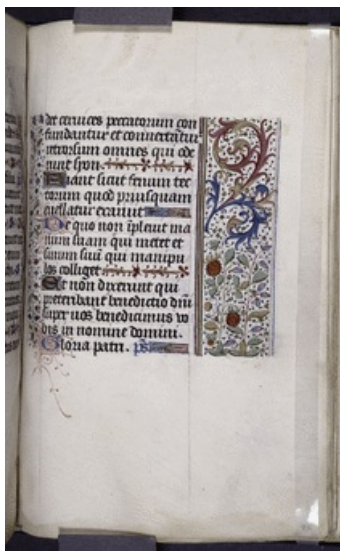 det ceruices peccatorum con
fundantur et conuertātur
retrorsum omnes qui ode
runt syon.
Fiant sicut fenum tec
torum quod priusquam
euellatur exaruit
De quo non īpleuit ma
num suam qui metet et
sinum suū qui manipu
los colliget
Et non dixerunt qui
preteribant benedictio dn̄i
super uos benedicimus vo
bis in nomine domini.
Gloria patri. ps